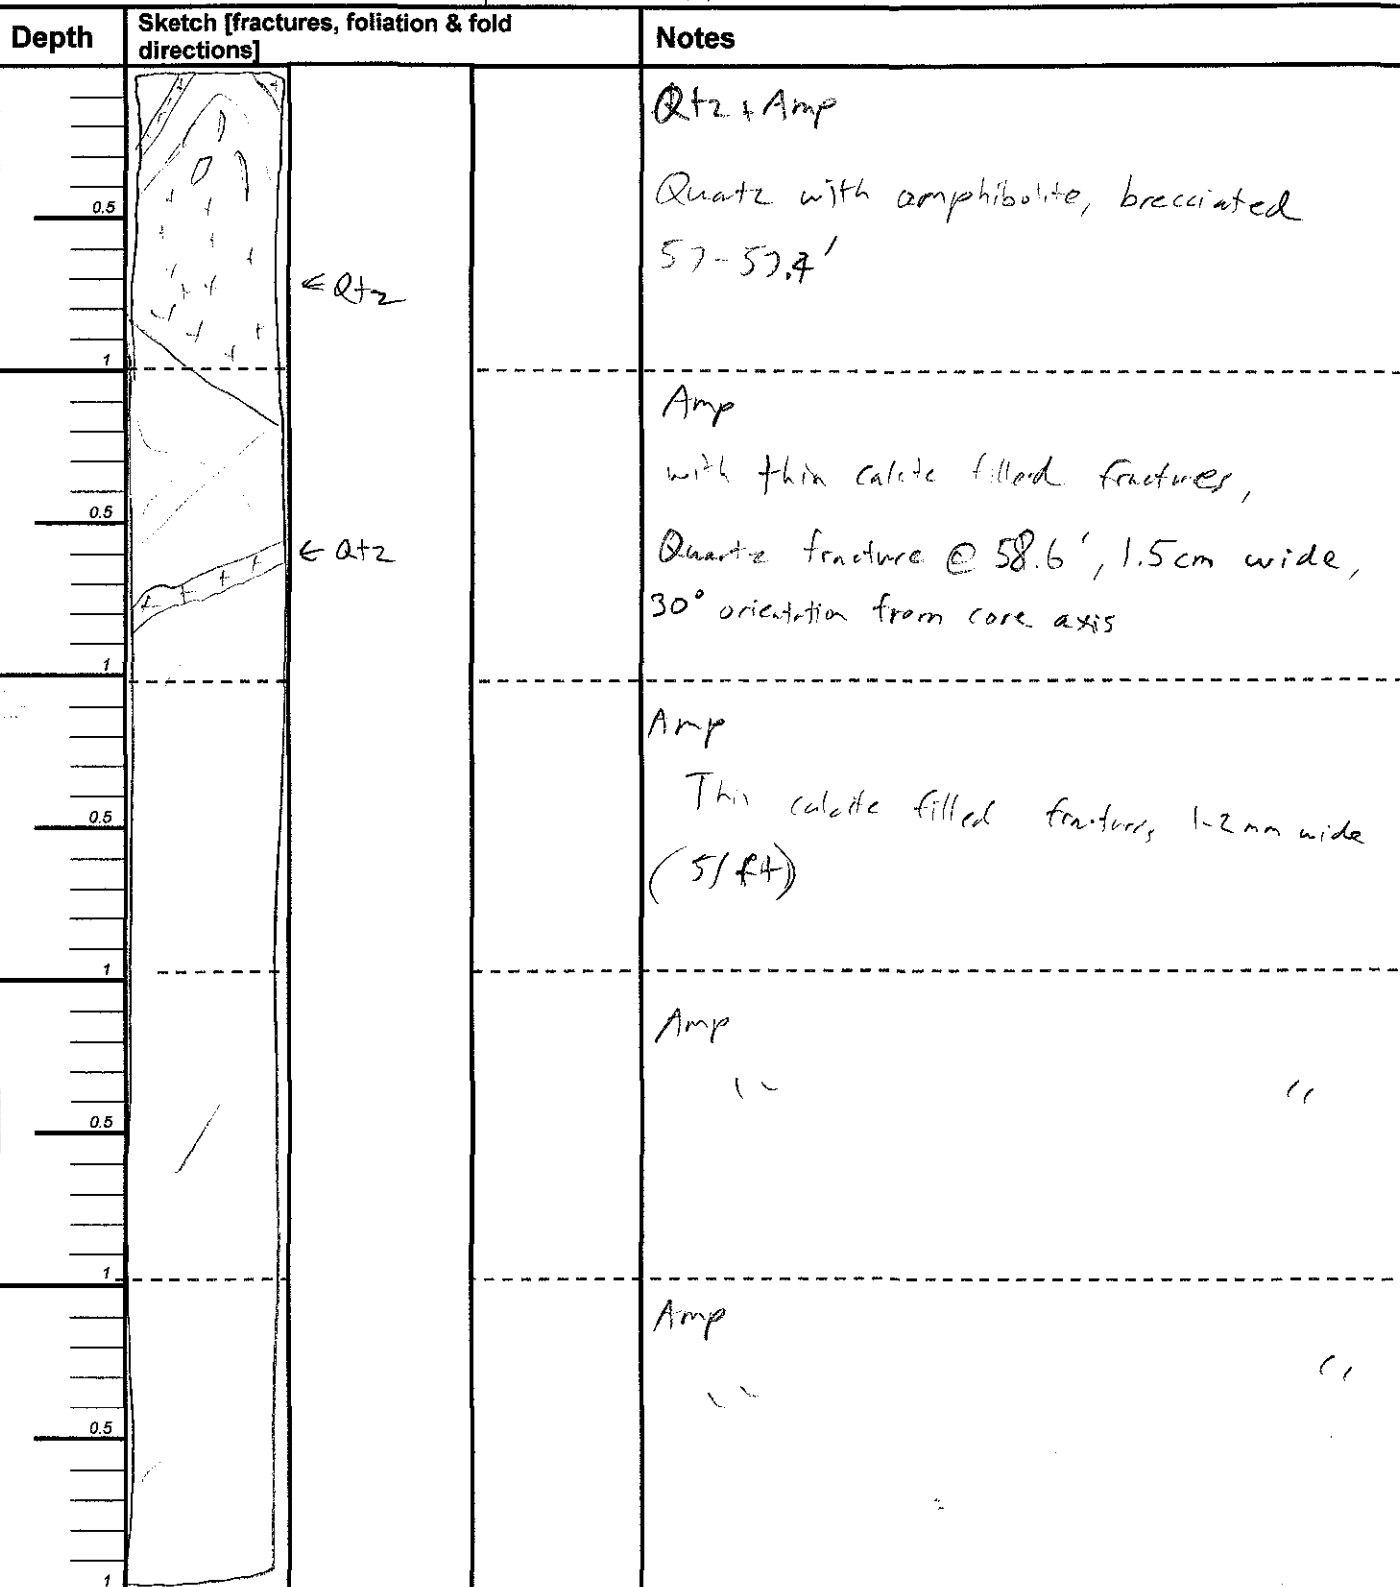 Depth
Sketch [fractures, foliation & fold
directions]
Notes
Qtz + Amp
Quatz with amphibolite, brecciated
0.5
57-57.4'
← Qtz
1
Amp
with thin calcite filled fractures,
0.5
← Qtz
Quartz fracture @ 58.6', 1.5cm wide,
30° orientation from core axis
1
Amp
Thin calcite filled fractures, 1-2mm wide
0.5
(5/ft)
1
Amp
" "
0.5
1
Amp
" "
0.5
1